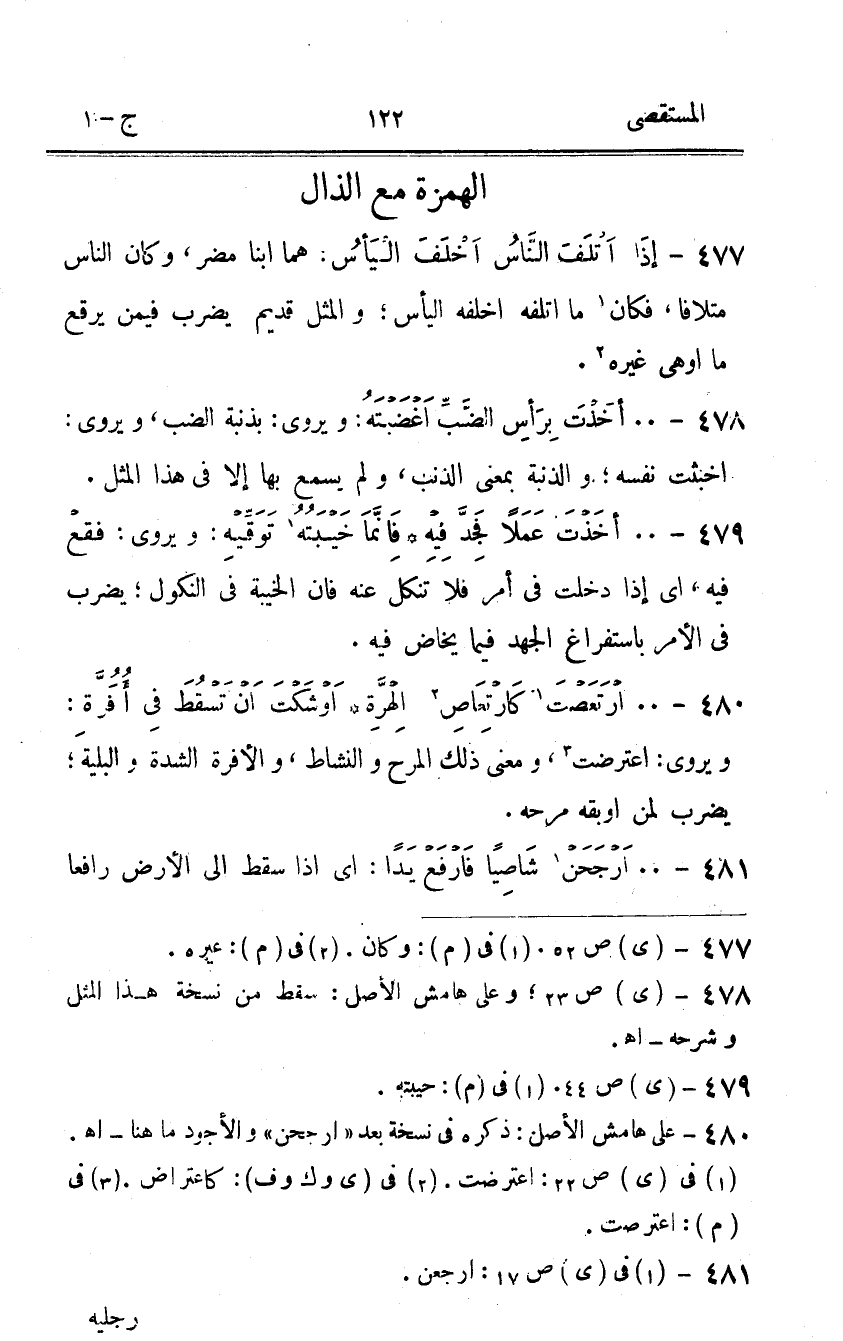 المستقصى ١٢٢ ج - ١
الهمزة مع الذال
٤٧٧ - إِذَا اَتْلَفَ النَّاسُ اَخْلَفَ الْيَأْسُ: هما ابنا مضر، وكان الناس
متلافا، فكان١ ما اتلفه اخلفه اليأس؛ و المثل قديم يضرب فيمن يرقع
ما اوهى غيره٢.
٤٧٨ - ٠٠ أَخَذْتَ بِرَأْسِ الضَّبِّ اَغْضَبْتَهُ: و يروى: بذنبة الضب، و يروى:
اخبثت نفسه؛ و الذنبة بمعنى الذنب، و لم يسمع بها إلا فى هذا المثل.
٤٧٩ - ٠٠ أَخَذْتَ عَمَلاً فَجِدَّ فِيْهِ * فَاِنَّمَا خَيْبَتُهُ١ تَوَقِّيْهِ: و يروى: فقعْ
فيه، اى إذا دخلت فى أمر فلا تنكل عنه فان الخيبة فى النكول؛ يضرب
فى الأمر باستفراغ الجهد فيما يخاض فيه.
٤٨٠ - ٠٠ اِرْتَعَصَتْ١ كَارْتِعَاصِ٢ الْهِرَّةِ * اَوْشَكَتْ اَنْ تَسْقُطَ فِى أُفُرَّةِ:
و يروى: اعترضت٣، و معنى ذلك المرح و النشاط، و الافرة الشدة و البلية؛
يضرب لمن اوبقه مرحه.
٤٨١ - ٠٠ اِرْجَحَنَّ١ شَاصِيًا فَارْفَعْ يَدًا: اى اذا سقط الى الأرض رافعا
٤٧٧ - (ى) ص ٥٢. (١) فى (م): وكان. (٢) فى (م): عيره.
٤٧٨ - (ى) ص ٢٣؛ و على هامش الأصل: سقط من نسخة هـذا المثل
و شرحه - اه.
٤٧٩ - (ى) ص ٤٤. (١) فى (م): حيبته.
٤٨٠ - على هامش الأصل: ذكره فى نسخة بعد «ارجحن» و الأجود ما هنا - اه.
(١) فى (ى) ص ٢٢: اعترضت. (٢) فى (ى وك وف): كاعتراض. (٣) فى
(م): اعترصت.
٤٨١ - (١) فى (ى) ص ١٧: ارجعن.
رجليه